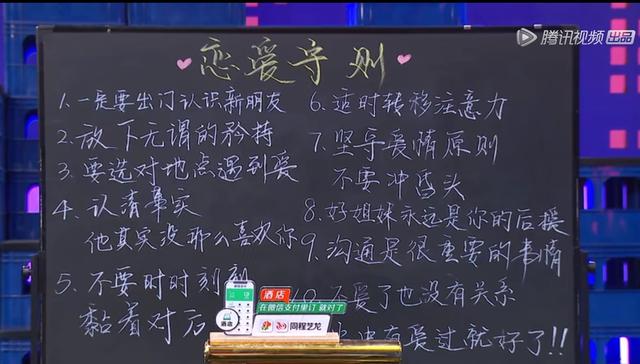 腾讯视频 出品
恋爱守则
1.一定要出门认识新朋友
2.放下无谓的矜持
3.要选对地点遇到爱
4.认清事实
他其实没那么喜欢你
5.不要时时刻刻
黏着对
6.适时转移注意力
7.坚守爱情原则
不要冲昏头
8.好姐妹永远是你的后援
9.沟通是很重要的事情
0.不爱了也没有关系
有爱过就好了!!
酒店
在微信支付里订 就对了
酒店
同程艺龙